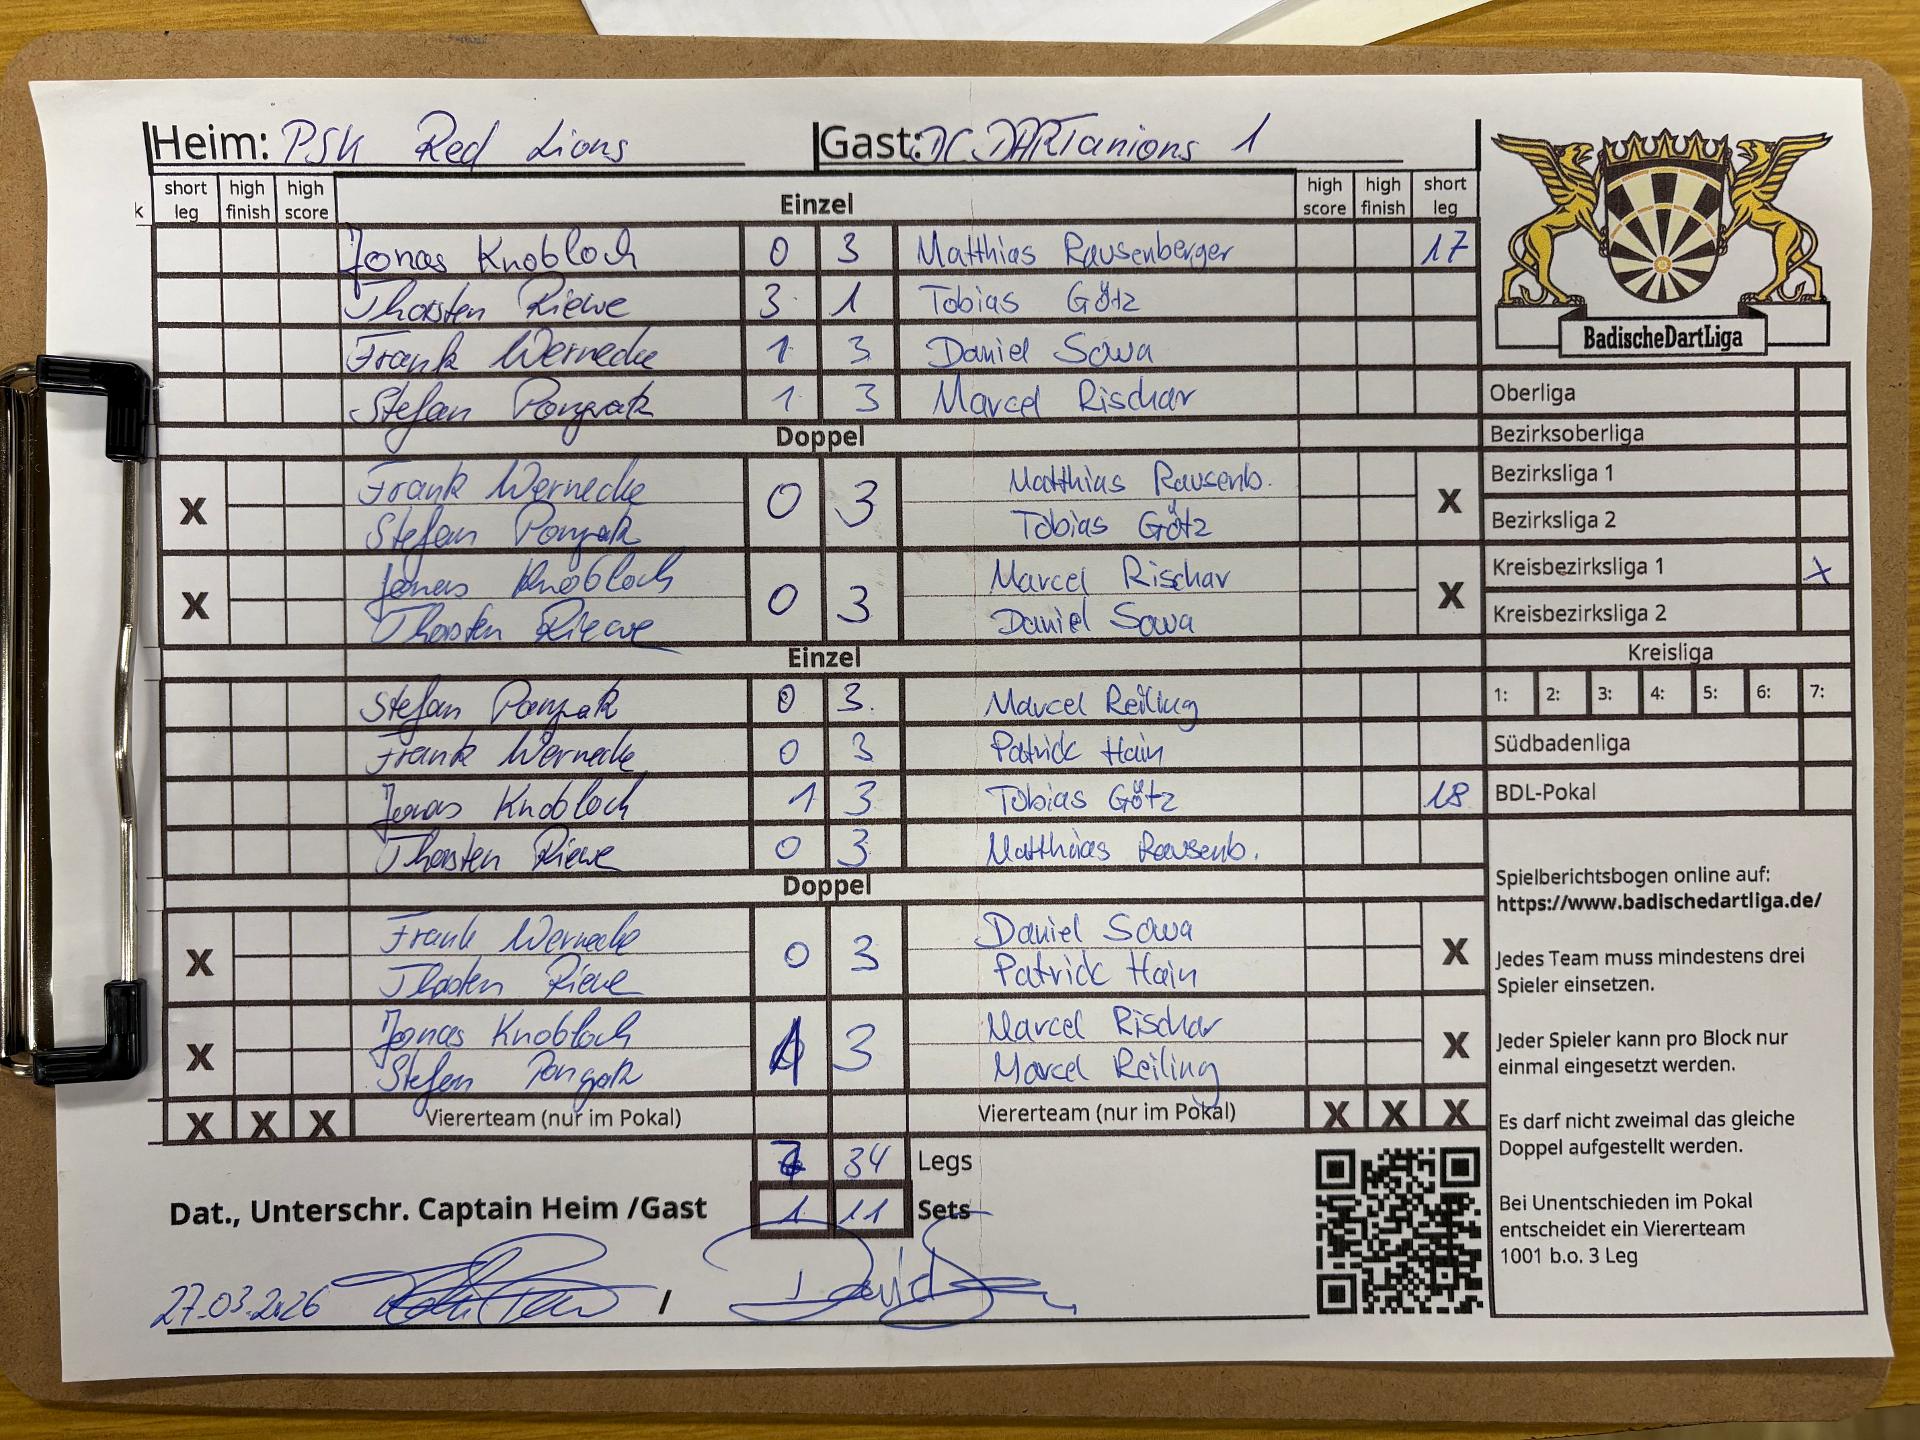 Heim: PSK Red Lions Gast: DC DARTanions 1
k short leg high finish high score Einzel high score high finish short leg
Jonas Knobloch 0 3 Matthias Rausenberger 17
Thorsten Riewe 3 1 Tobias Götz
Frank Wernecke 1 3 Daniel Sowa
Stefan Pongratz 1 3 Marcel Rischar
Doppel
X Frank Wernecke 0 3 Matthias Rausenb. X
Stefan Pongratz Tobias Götz
X Jonas Knobloch 0 3 Marcel Rischar X
Thorsten Riewe Daniel Sowa
Einzel
Stefan Pongratz 0 3 Marcel Reiling
Frank Wernecke 0 3 Patrick Hain
Jonas Knobloch 1 3 Tobias Götz 18
Thorsten Riewe 0 3 Matthias Rausenb.
Doppel
X Frank Wernecke 0 3 Daniel Sowa X
Thorsten Riewe Patrick Hain
X Jonas Knobloch 1 3 Marcel Rischar X
Stefan Pongratz Marcel Reiling
X X X Vierterteam (nur im Pokal) Vierterteam (nur im Pokal) X X X
7 34 Legs
Dat., Unterschr. Captain Heim /Gast 1 11 Sets
27.03.2026 /
BadischeDartLiga
Oberliga
Bezirksoberliga
Bezirksliga 1
Bezirksliga 2
Kreisbezirksliga 1 x
Kreisbezirksliga 2
Kreisliga
1: 2: 3: 4: 5: 6: 7:
Südbadenliga
BDL-Pokal
Spielberichtsbogen online auf:
https://www.badischedartliga.de/
Jedes Team muss mindestens drei
Spieler einsetzen.
Jeder Spieler kann pro Block nur
einmal eingesetzt werden.
Es darf nicht zweimal das gleiche
Doppel aufgestellt werden.
Bei Unentschieden im Pokal
entscheidet ein Viererteam
1001 b.o. 3 Leg